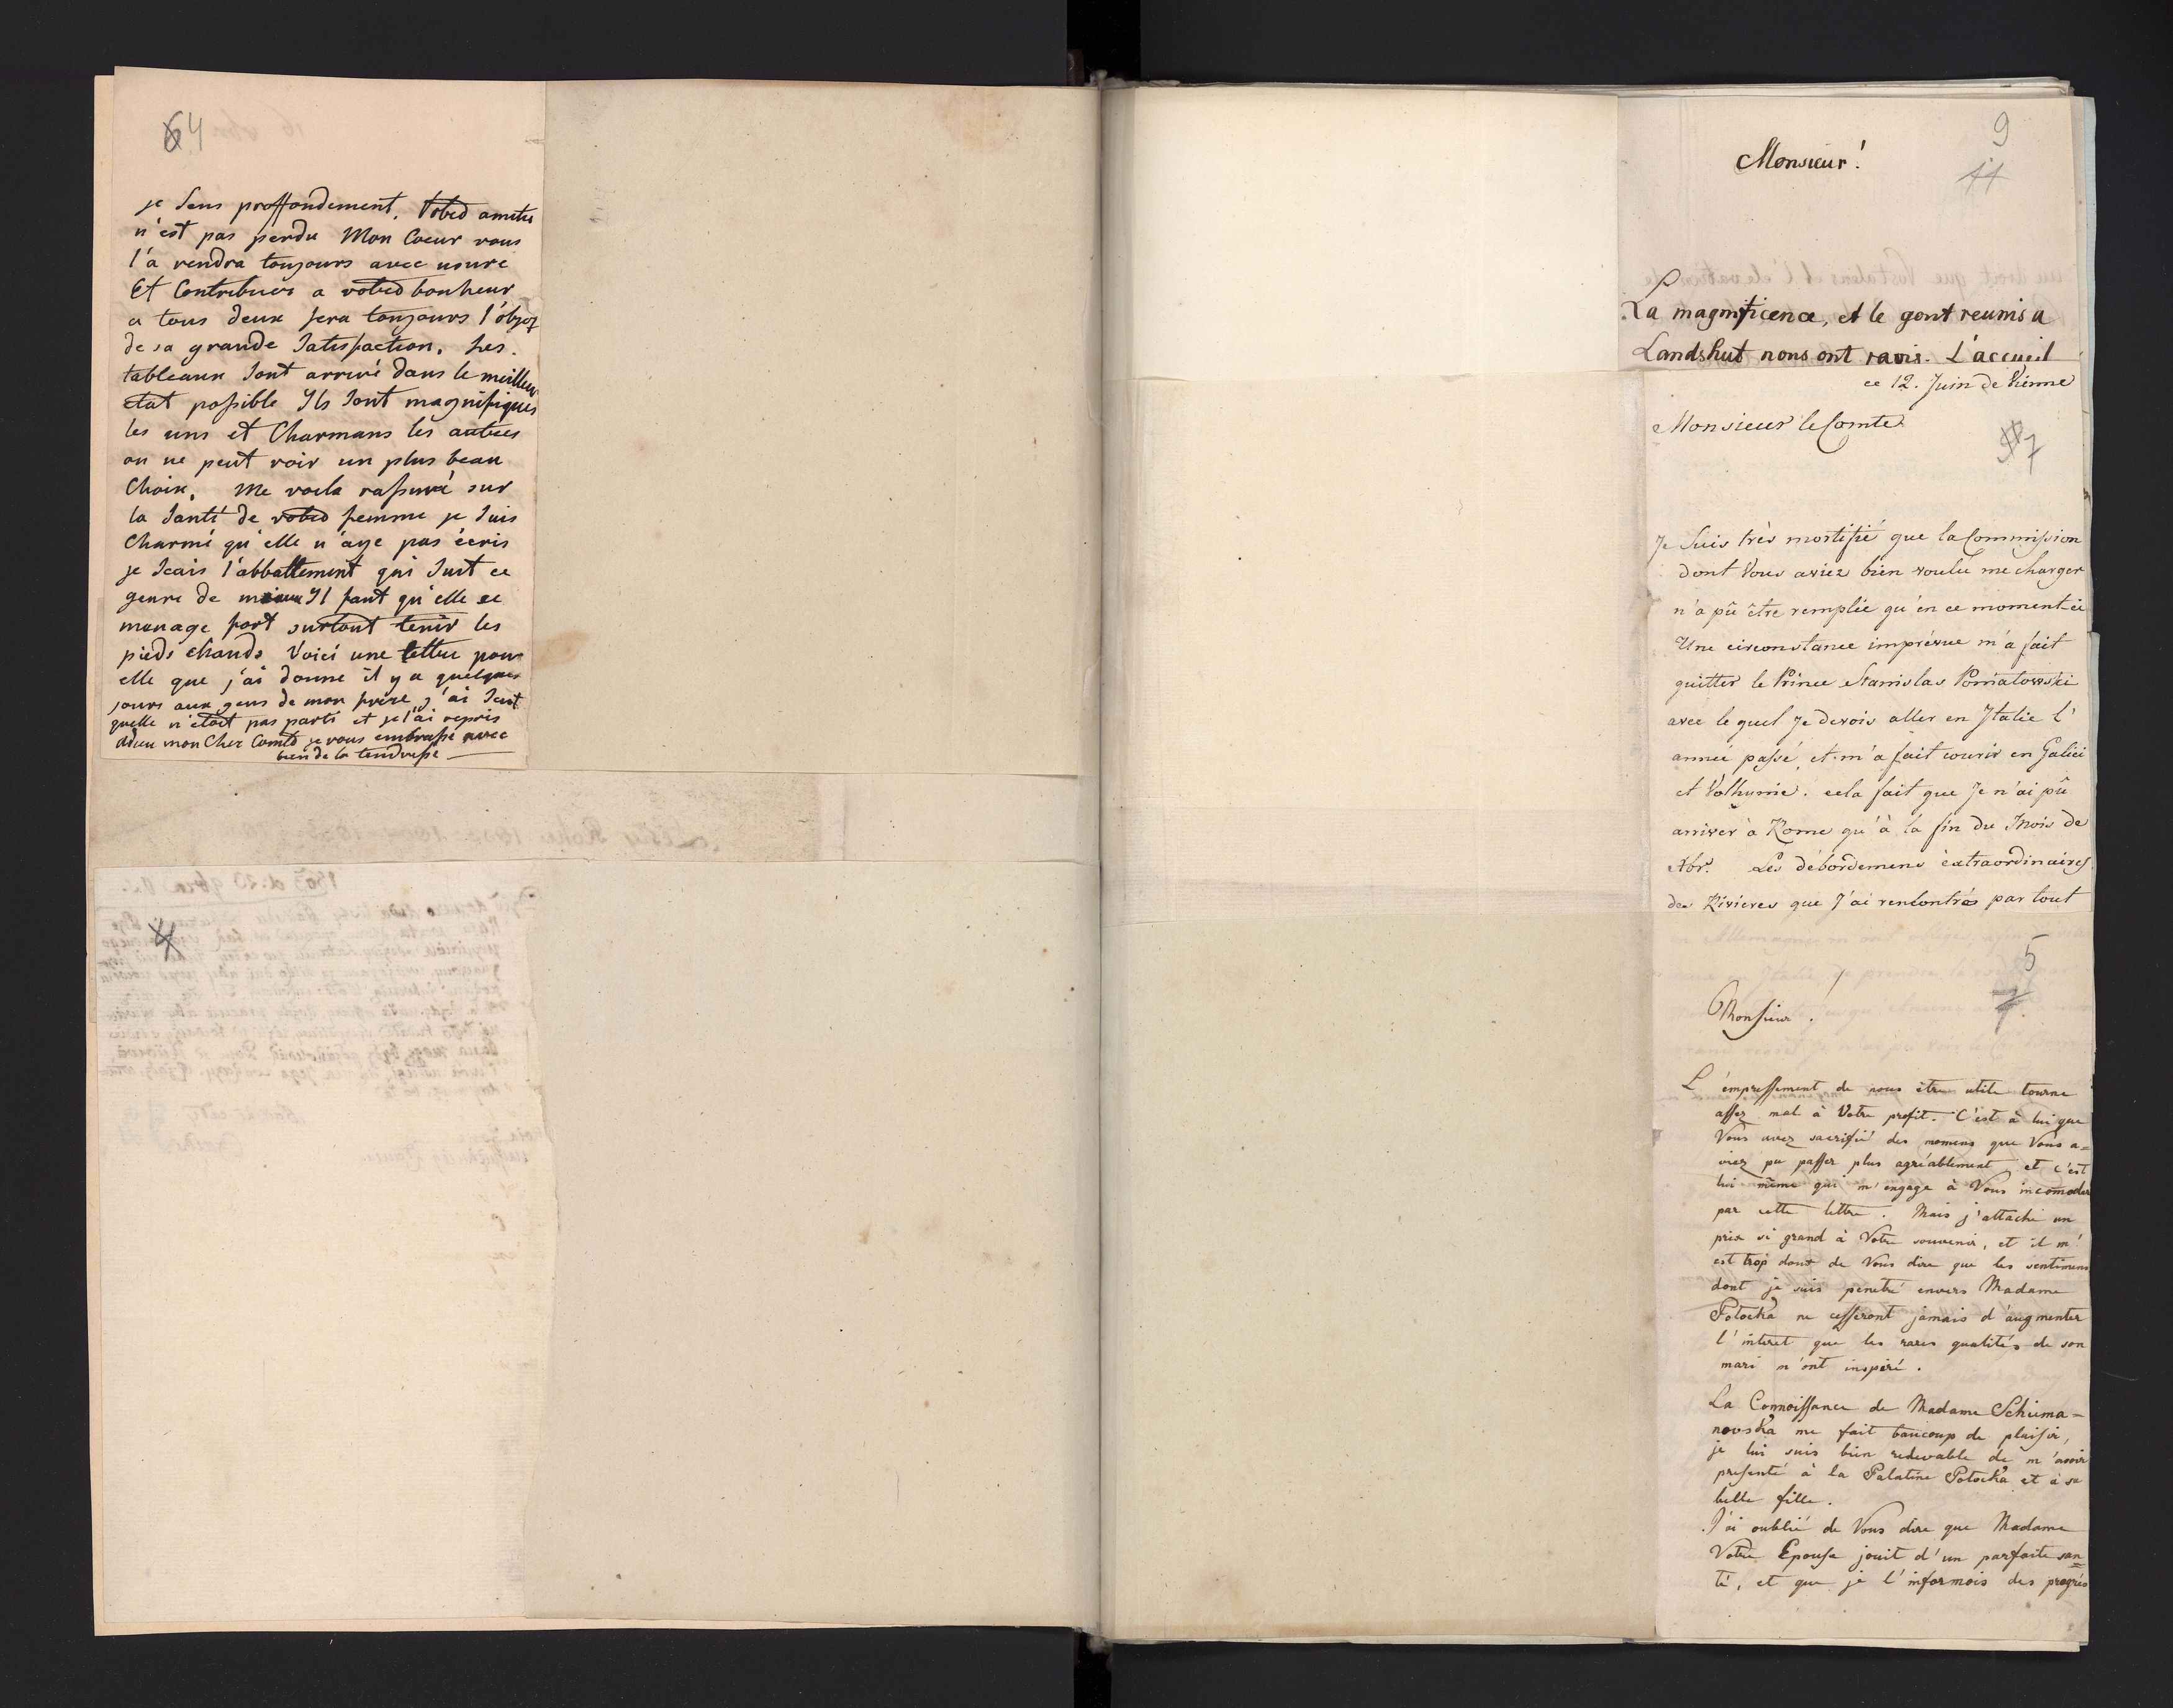 64
je sens proffondement. Votre amitie
n'est pas perdu Mon Coeur vous
l'a rendra toujours avec usure
Et Contribuer a votre bonheur
a tous deux sera toujours l'objet
de sa grande Satisfaction. Les
tableaux sont arrivé dans le meilleur
etat possible Ils sont magnifiques
les uns et Charmans les autres
on ne peut voir un plus beau
Choix. Me voila rassuré sur
la santé de votre femme je suis
Charmé qu'elle n'aye pas écris
je scais l'abbattement qui suit ce
genre de Il faut qu'elle se
menage fort surtout tenir les
pieds chauds Voici une lettre pour
elle que j'ai donné il y a quelques
jours aux gens de mon frere j'ai scut
quelle n'étoit pas parti et je l'ai repris
Adieu mon Cher Comte je vous embrasse avec
bien de la tendresse
4
9
11
Monsieur!
La magnificence, et le gout reunis a
Landshut nous ont ravis. L'accueil
ce 12. Juin de Vienne
Monsieur le Comte
7
Je suis très mortifié que la Commission
dont Vous aviez bien voulu me charger
n'a pû être remplie qu'en ce moment-ci
Une circonstance imprévue m'a fait
quitter le Prince Stanislas Poniatowski
avec le quel je devois aller en Italie l'
année passé, et m'a fait courir en Galici
et Volhynie. cela fait que Je n'ai pû
arriver à Rome qu'à la fin du Mois de
Xbr. Les débordemens éxtraordinaires
des Rivieres que J'ai rencontrés par tout
5
7
Monsieur.
L'empressement de nous être utile tourne
assez mal à Votre profit. C'est à lui que
Vous avez sacrifié des momens que Vous a=
viez pu passer plus agréablement et c'est
lui même qui m'engage à Vous incomoder
par cette lettre. Mais j'attache un
prix si grand à Votre souvenir, et il m'
est trop doux de Vous dire que les sentimens
dont je suis penetré envers Madame
Potocka ne cesseront jamais d'augmenter
l'interet que les rares qualités de son
mari m'ont inspiré.
La Connoissance de Madame Schuma=
novska me fait baucoup de plaisir,
je lui suis bien redevable de m'avoir
presenté à la Palatine Potocka et à sa
belle fille.
J'ai oublié de Vous dire que Madame
Votre Epouse jouit d'un parfaite san=
té, et que je l'informois des progrès